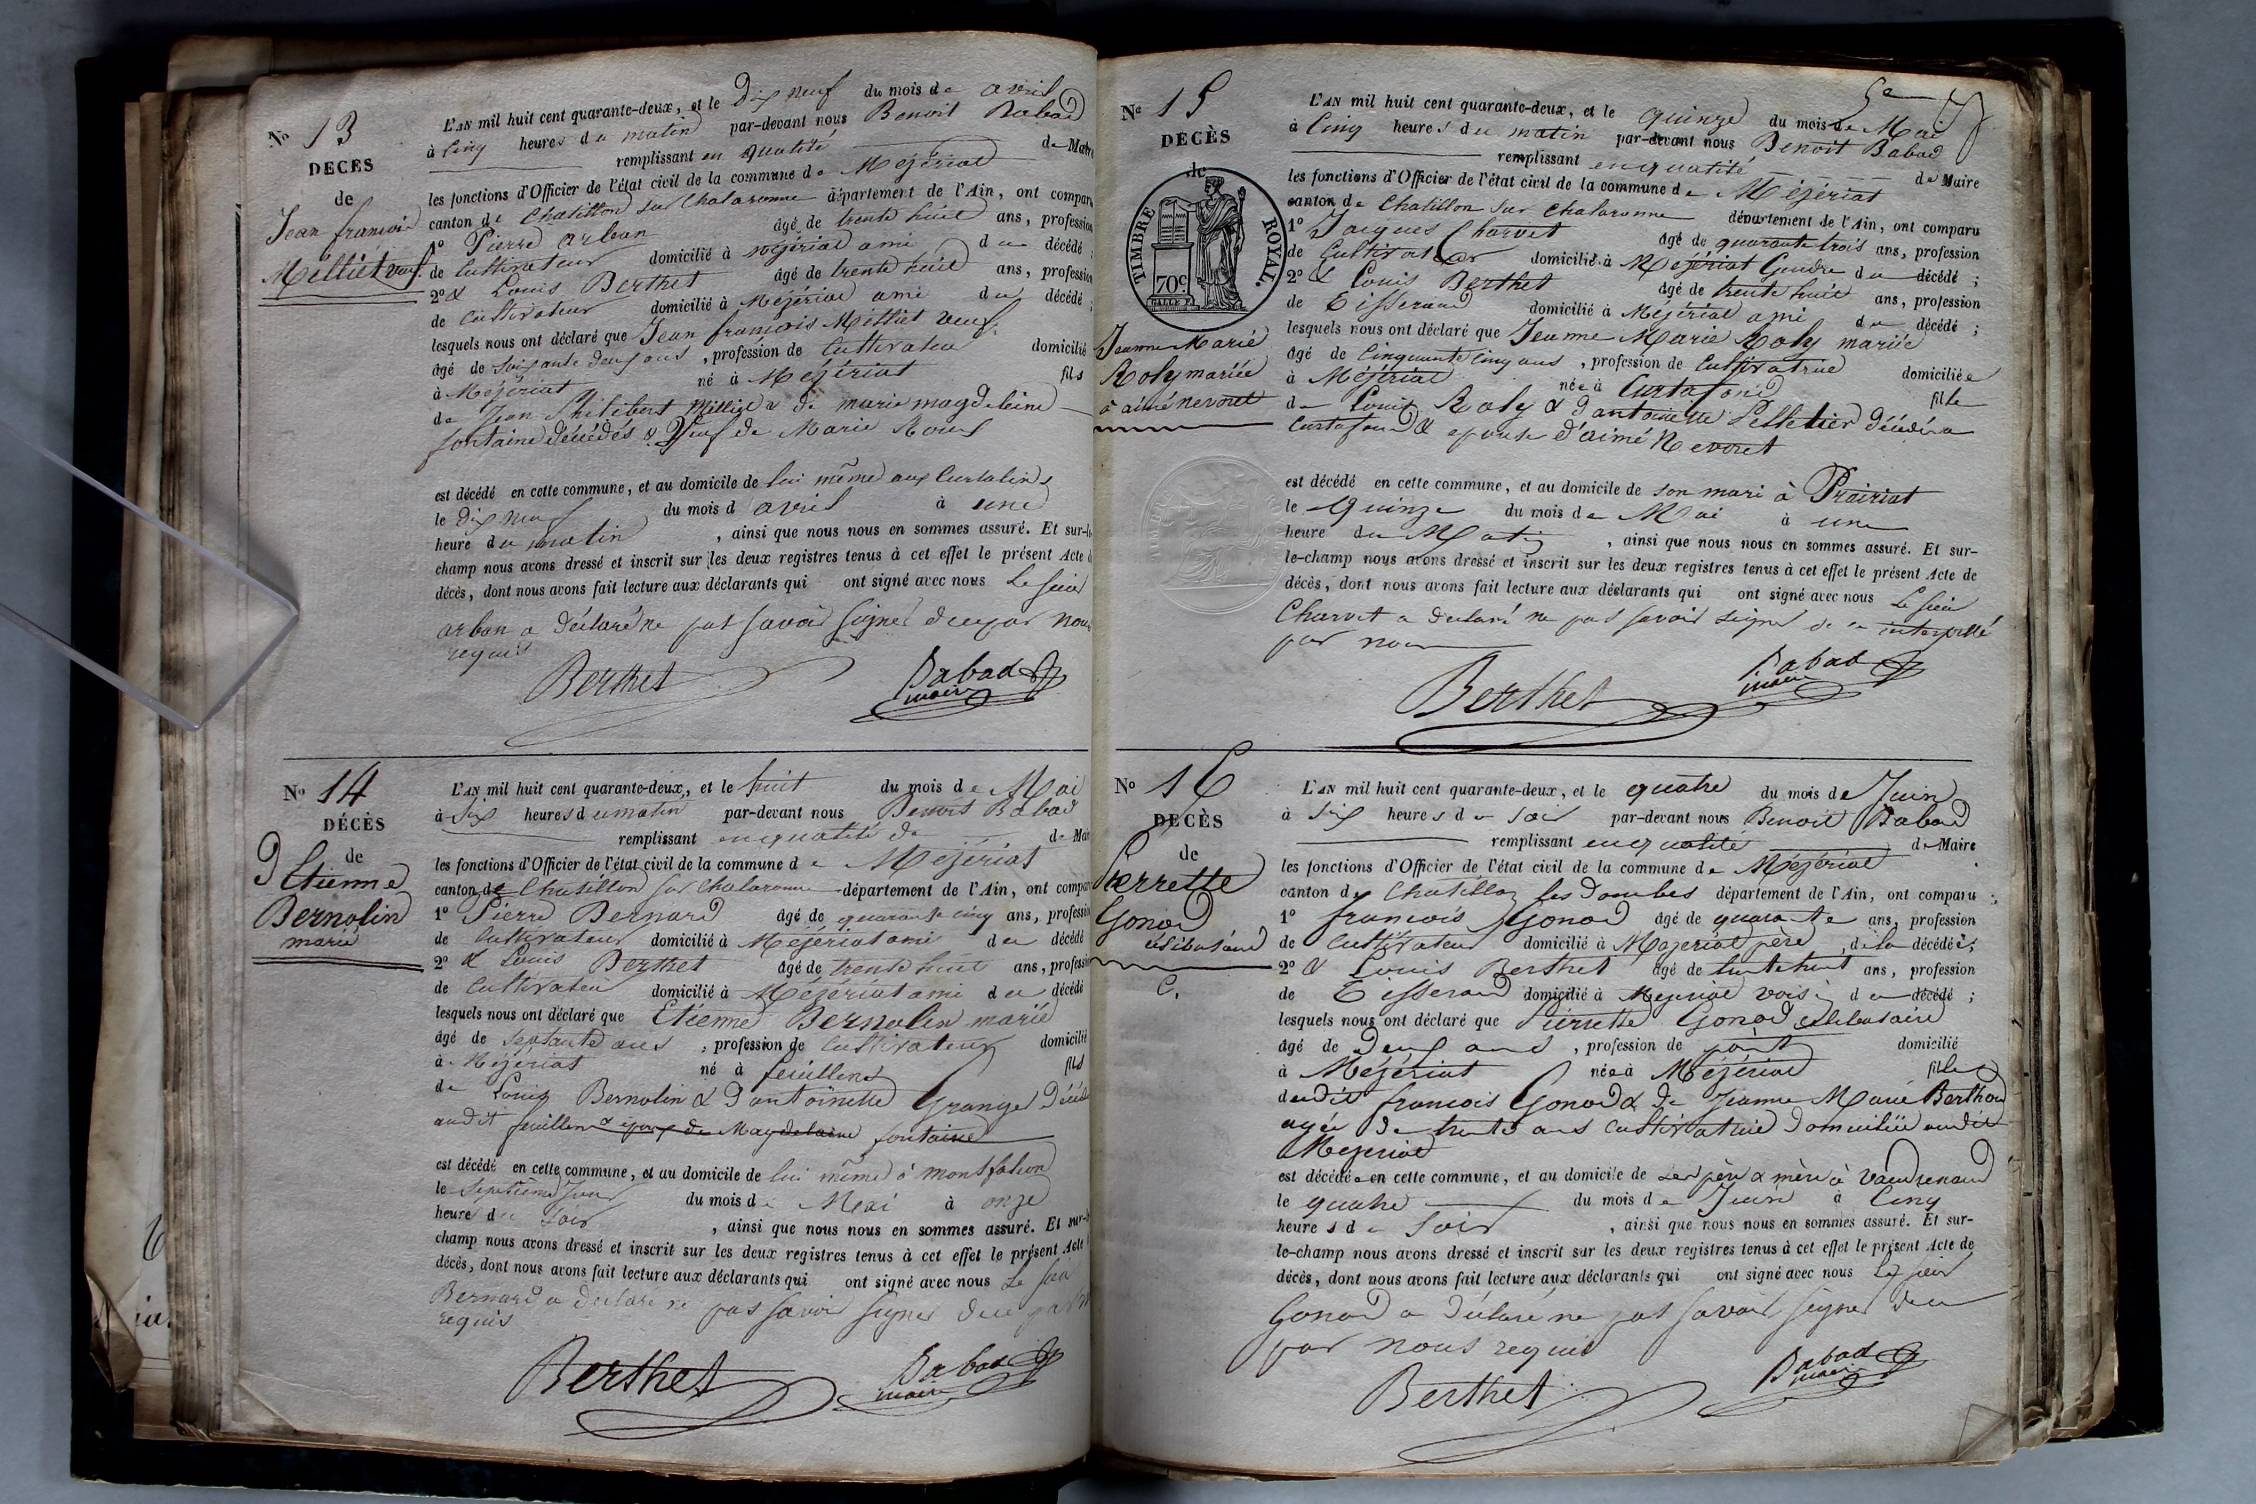 No 13
DECES
de
Jean francois
Milliet veuf
L'AN mil huit cent quarante-deux, et le dix neuf du mois de avril
à cinq heures du matin par-devant nous Benoit Babad
remplissant en qualité de Maire
les fonctions d'Officier de l'état civil de la commune de Mézériat
canton de Chatillon sur Chalaronne département de l'Ain, ont comparu
1o Pierre arban âgé de trente huit ans, profession
de Cultivateur domicilié à Mézériat ami du décédé ;
2o & Louis Berthet âgé de trente huit ans, profession
de Cultivateur domicilié à Mézériat ami du décédé ;
lesquels nous ont déclaré que Jean françois Milliet veuf
âgé de soixante deux ans, profession de Cultivateur domicilié
à Mézériat né à Mézériat fils
de Jean Philibert Milliet & de marie magdeleine
fontaine décédés & Veuf de Marie Roux
est décédé en cette commune, et au domicile de lui même aux Curtalins
le dix neuf du mois d avril à une
heure du matin, ainsi que nous nous en sommes assuré. Et sur-le
champ nous avons dressé et inscrit sur les deux registres tenus à cet effet le présent Acte d
décès, dont nous avons fait lecture aux déclarants qui ont signé avec nous Le sieur
arban a déclaré ne pas savoir signer de ce par nous
requis
Berthet Babad
maire
No 14
DÉCÈS
de
D Etienne
Bernolin
marié
L'AN mil huit cent quarante-deux, et le huit du mois de Mai
à six heures du matin par-devant nous Benoit Babad
remplissant en qualité de de Mai
les fonctions d'Officier de l'état civil de la commune de Mézériat
canton de Chatillon sur Chalaronne département de l'Ain, ont compar
1o Pierre Bernard âgé de quarante cinq ans, profession
de Cultivateur domicilié à Mézériat ami du décédé
2o & Louis Berthet âgé de trente huit ans, profession
de Cultivateur domicilié à Mézériat ami du décédé
lesquels nous ont déclaré que Etienne Bernolin marié
âgé de septante ans, profession de Cultivateur domicilié
à Mézériat né à feuillens fils
de Louis Bernolin & d'antoinette Grange décédés
audit feuillens & epoux de Magdelaine fontaine
est décédé en cette commune, et au domicile de lui même à montfalcon
le septième jour du mois de Mai à onze
heure du soir, ainsi que nous nous en sommes assuré. Et sur-le
champ nous avons dressé et inscrit sur les deux registres tenus à cet effet le présent Acte
décès, dont nous avons fait lecture aux déclarants qui ont signé avec nous Le sieur
Bernard a déclaré ne pas savoir signer de ce par n
requis
Berthet Babad
maire
No 15
DECÈS
de
TIMBRE ROYAL.
70c.
Jeanne Marie
Roly mariée
à aimé nevoret
5e
L'AN mil huit cent quarante-deux, et le quinze du mois de Mai
à Cinq heures du matin par-devant nous Benoit Babad
remplissant en qualité de Maire
les fonctions d'Officier de l'état civil de la commune de Mézériat
canton de Chatillon sur Chalaronne département de l'Ain, ont comparu
1o Jacques Charvet âgé de quarante trois ans, profession
de Cultivateur domicilié à Mézériat Gendre du décédé ;
2o & Louis Berthet âgé de trente huit ans, profession
de Tisserand domicilié à Mézériat ami du décédé ;
lesquels nous ont déclaré que Jeanne Marie Roly mariée
âgé de Cinquante cinq ans, profession de Cultivatrice domiciliée
à Mézériat née à Curtafond fille
de Louis Roly & d'antoinette Pelletier décédés a
Curtafond & epouse d'aimé Nevoret
est décédé en cette commune, et au domicile de son mari à Prairiat
le Quinze du mois de Mai à une
heure du Matin, ainsi que nous nous en sommes assuré. Et sur-
le-champ nous avons dressé et inscrit sur les deux registres tenus à cet effet le présent Acte de
décès, dont nous avons fait lecture aux déclarants qui ont signé avec nous Le sieur
Charvet a declaré ne pas savoir signer de ce interpellé
par nous
Berthet Babad
maire
No 16
DECÈS
de
Pierrette
Gonod
célibataire
C.
L'AN mil huit cent quarante-deux, et le quatre du mois de Juin
à six heures du soir par-devant nous Benoit Babad
remplissant en qualité de Maire
les fonctions d'Officier de l'état civil de la commune de Mézériat
canton de Chatillon les Dombes département de l'Ain, ont comparu :
1o françois Gonod âgé de quarante ans, profession
de Cultivateur domicilié à Mézériat père, de la décédée ;
2o & Louis Berthet âgé de trente huit ans, profession
de Tisserand domicilié à Mézériat voisin du décédé ;
lesquels nous ont déclaré que Pierrette Gonod célibataire
âgé de Deux ans, profession de point domicilié
à Mézériat née à Mézériat fille
dudit françois Gonod & de Jeanne Marie Berthoud
agée de trente ans Cultivatrice domiciliée audit
Mézériat
est décédée en cette commune, et au domicile de ses père & mère à Vaudrenand
le quatre du mois de Juin à Cinq
heures du soir, ainsi que nous nous en sommes assuré. Et sur-
le-champ nous avons dressé et inscrit sur les deux registres tenus à cet effet le présent Acte de
décès, dont nous avons fait lecture aux déclarants qui ont signé avec nous Le sieur
Gonod a déclaré ne pas savoir signer de ce
par nous requis
Berthet Babad
maire